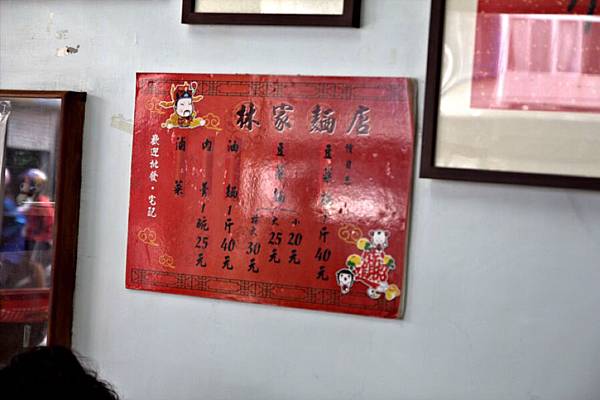 林家麵店
價目表
豆菜麵1斤40元
豆菜麵
小20元
大25元
特大30元
油麵1斤40元
肉羹1碗25元
滷菜
歡迎批發・宅配